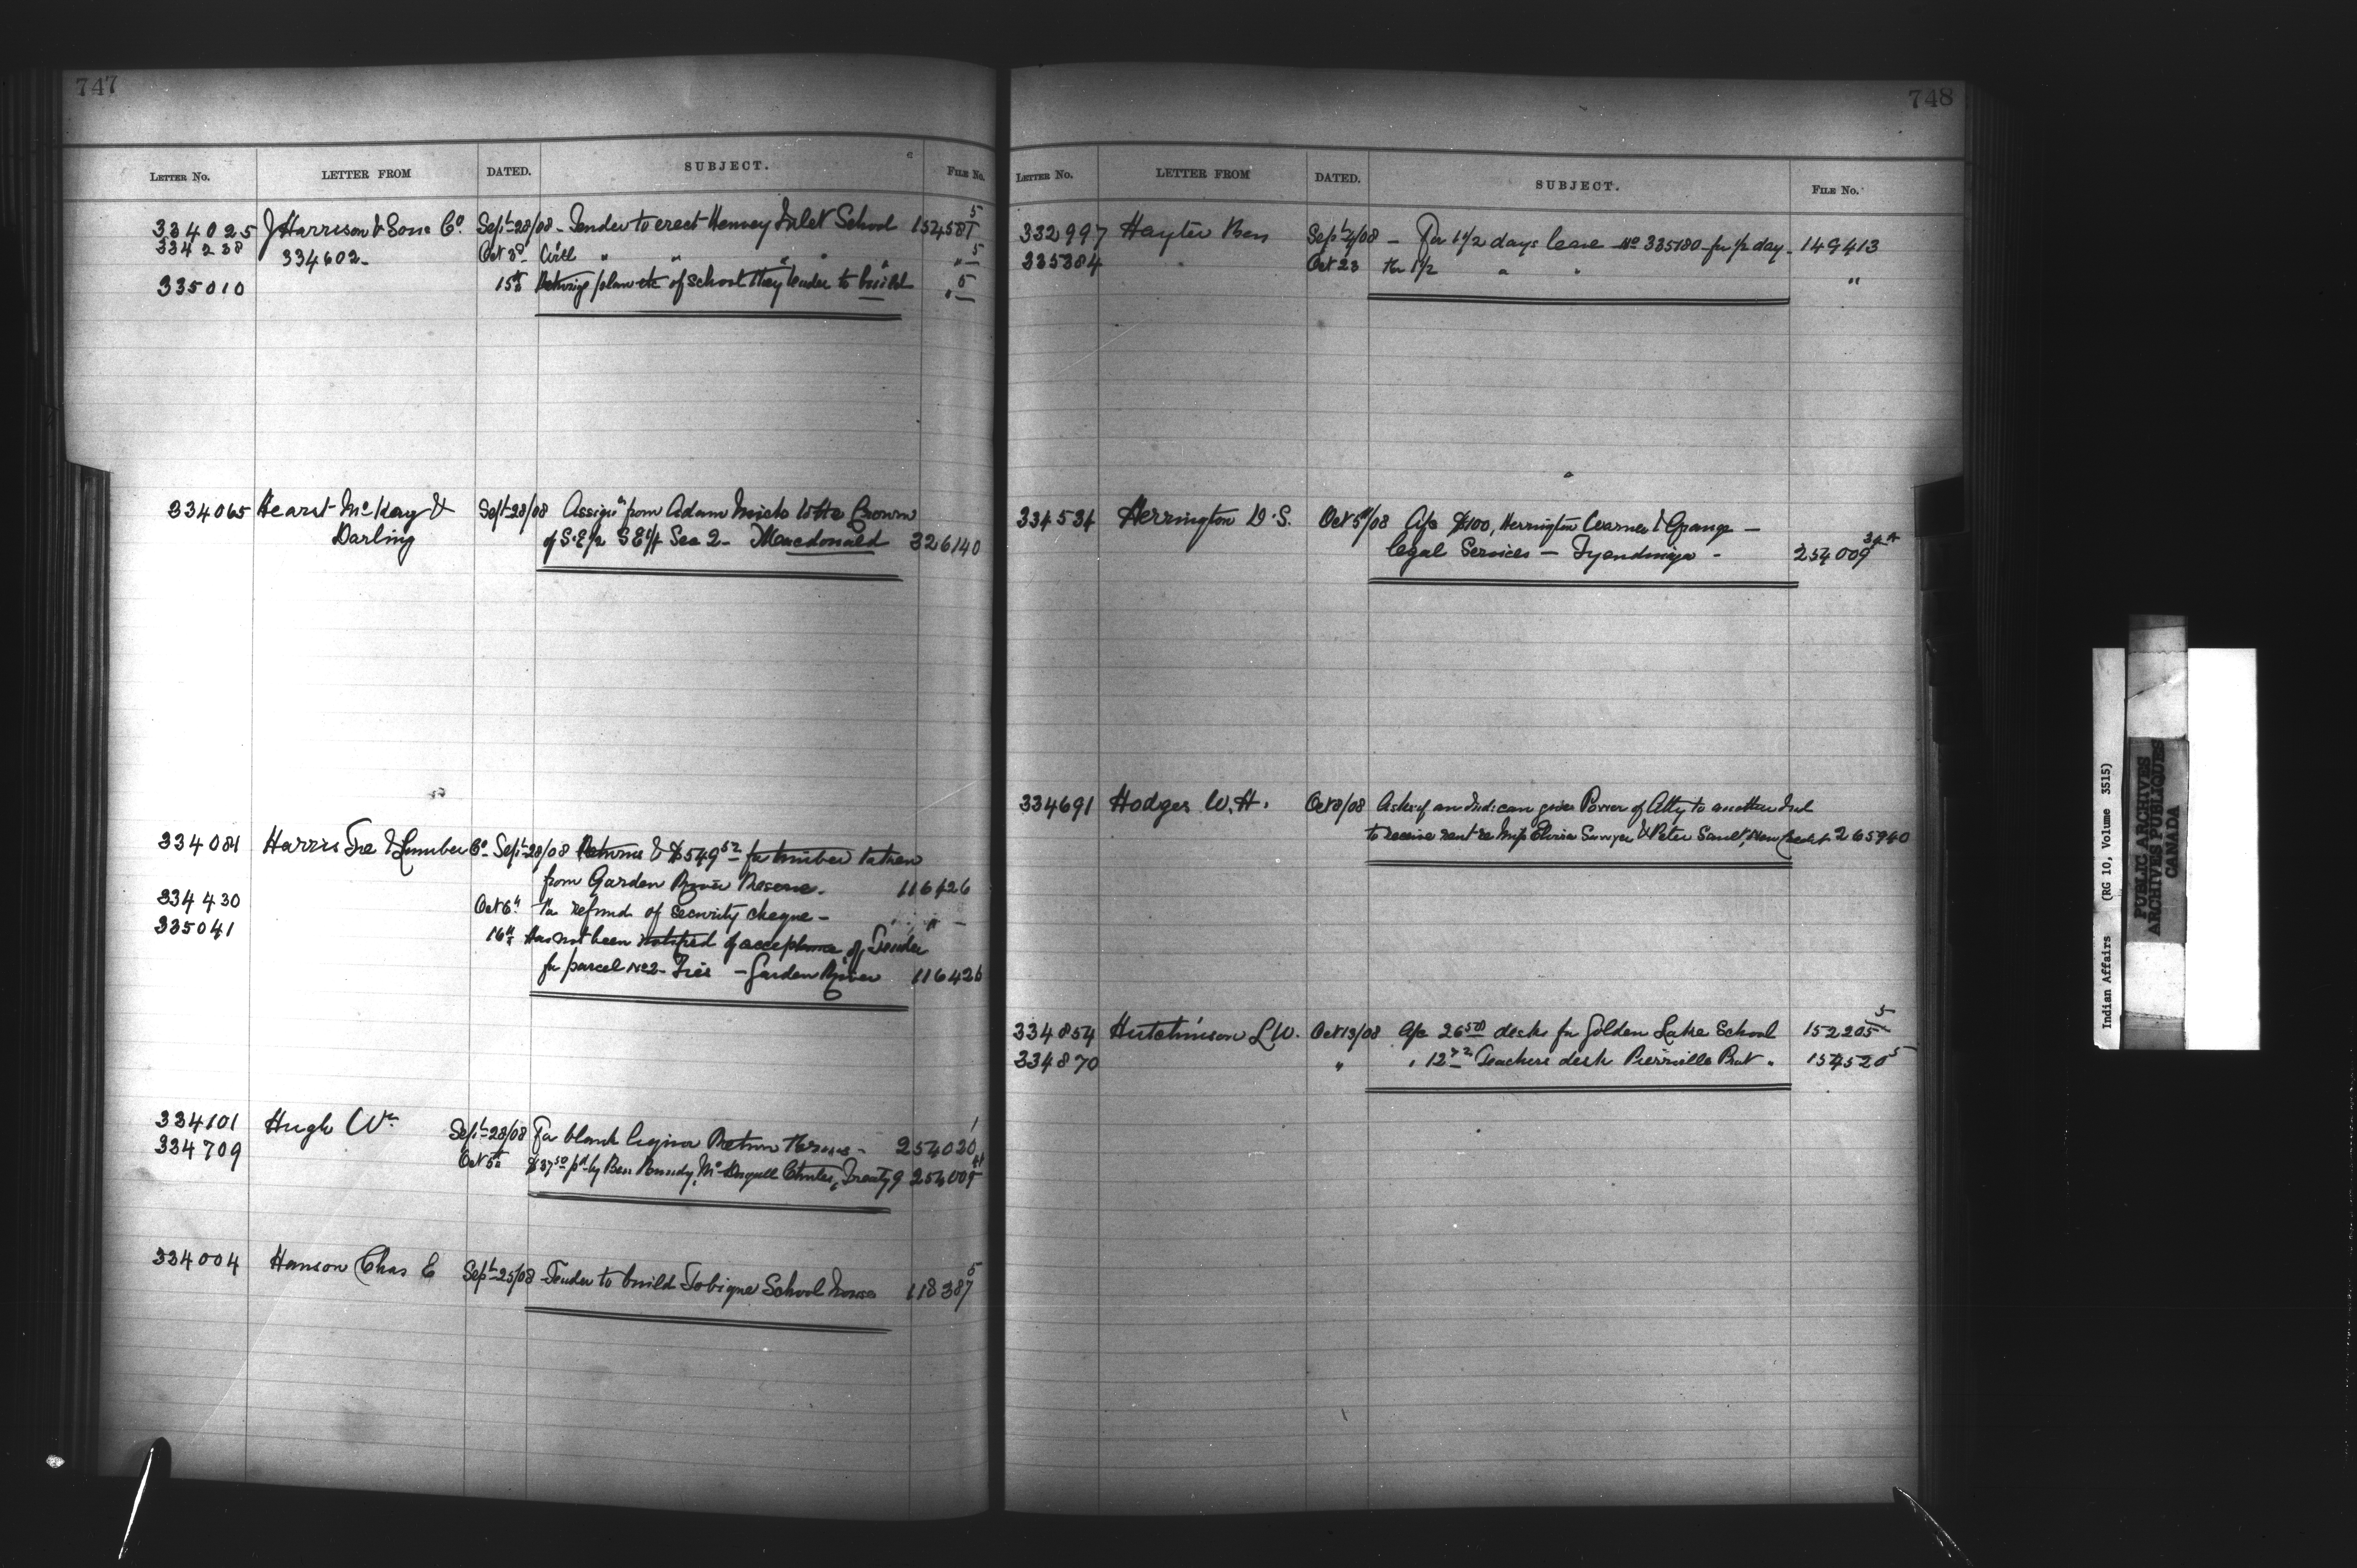 747
LETTER NO. LETTER FROM DATED. SUBJECT. FILE NO.
334025 J Harrison & Sons Co. Sept 28/08 - Tender to erect Henvey Inlet School 152458 5
334238 334602 - Oct 3d With " " " " " " 5
335010 15th plan etc of school they tender to build " 5
334065 Hearst McKay & Sept 28/08 Assign't from Adam Mick to the Crown
Darling of S.E 1/2 S E 1/4 Sec 2 - Macdonald 326140
334081 Harris Tie & Lumber Co - Sept 28/08 Returns & $549 52 for timber taken
from Garden River Reserve. 116426
334430 Oct 6th For refund of security cheque - " " -
335041 16th Has not been notified of acceptance of Tender
for parcel No 2 - Ties - Garden River 116426
334101 Hugh Wm Sept 28/08 For blank liquor Return forms - 254020 1
334709 Oct 5th $37 50 pd by Ben Treaty 9 254009
334004 Hanson Chas E Sept 25/08 Tender to build Tobique School house 118387 5
748
LETTER NO. LETTER FROM DATED. SUBJECT. FILE NO.
332997 Hayter Ben Sept 4/08 - For 1 1/2 days lease No 335180 - for 1/2 day - 149413
335384 " Oct 23 For 1 1/2 " " "
334534 Herrington W.S. Oct 5th/08 A/c $100, Herrington Warner & Grange -
legal Services - Tyendinaga - 254009
334691 Hodges W.H. Oct 8/08 Asks if an Ind. can give Power of Atty to another Ind
to receive rent re Mrs Sawyer & Peter Sault, New Credit 265940
334854 Hutchinson L W. Oct 13/08 A/c 26 50 desks for Golden Lake School 152205 5
334870 " " 12 72 Teachers desk Pierreville Prot " 154520 5
Indian Affairs (RG 10, Volume 3515)
PUBLIC ARCHIVES
ARCHIVES PUBLIQUES
CANADA